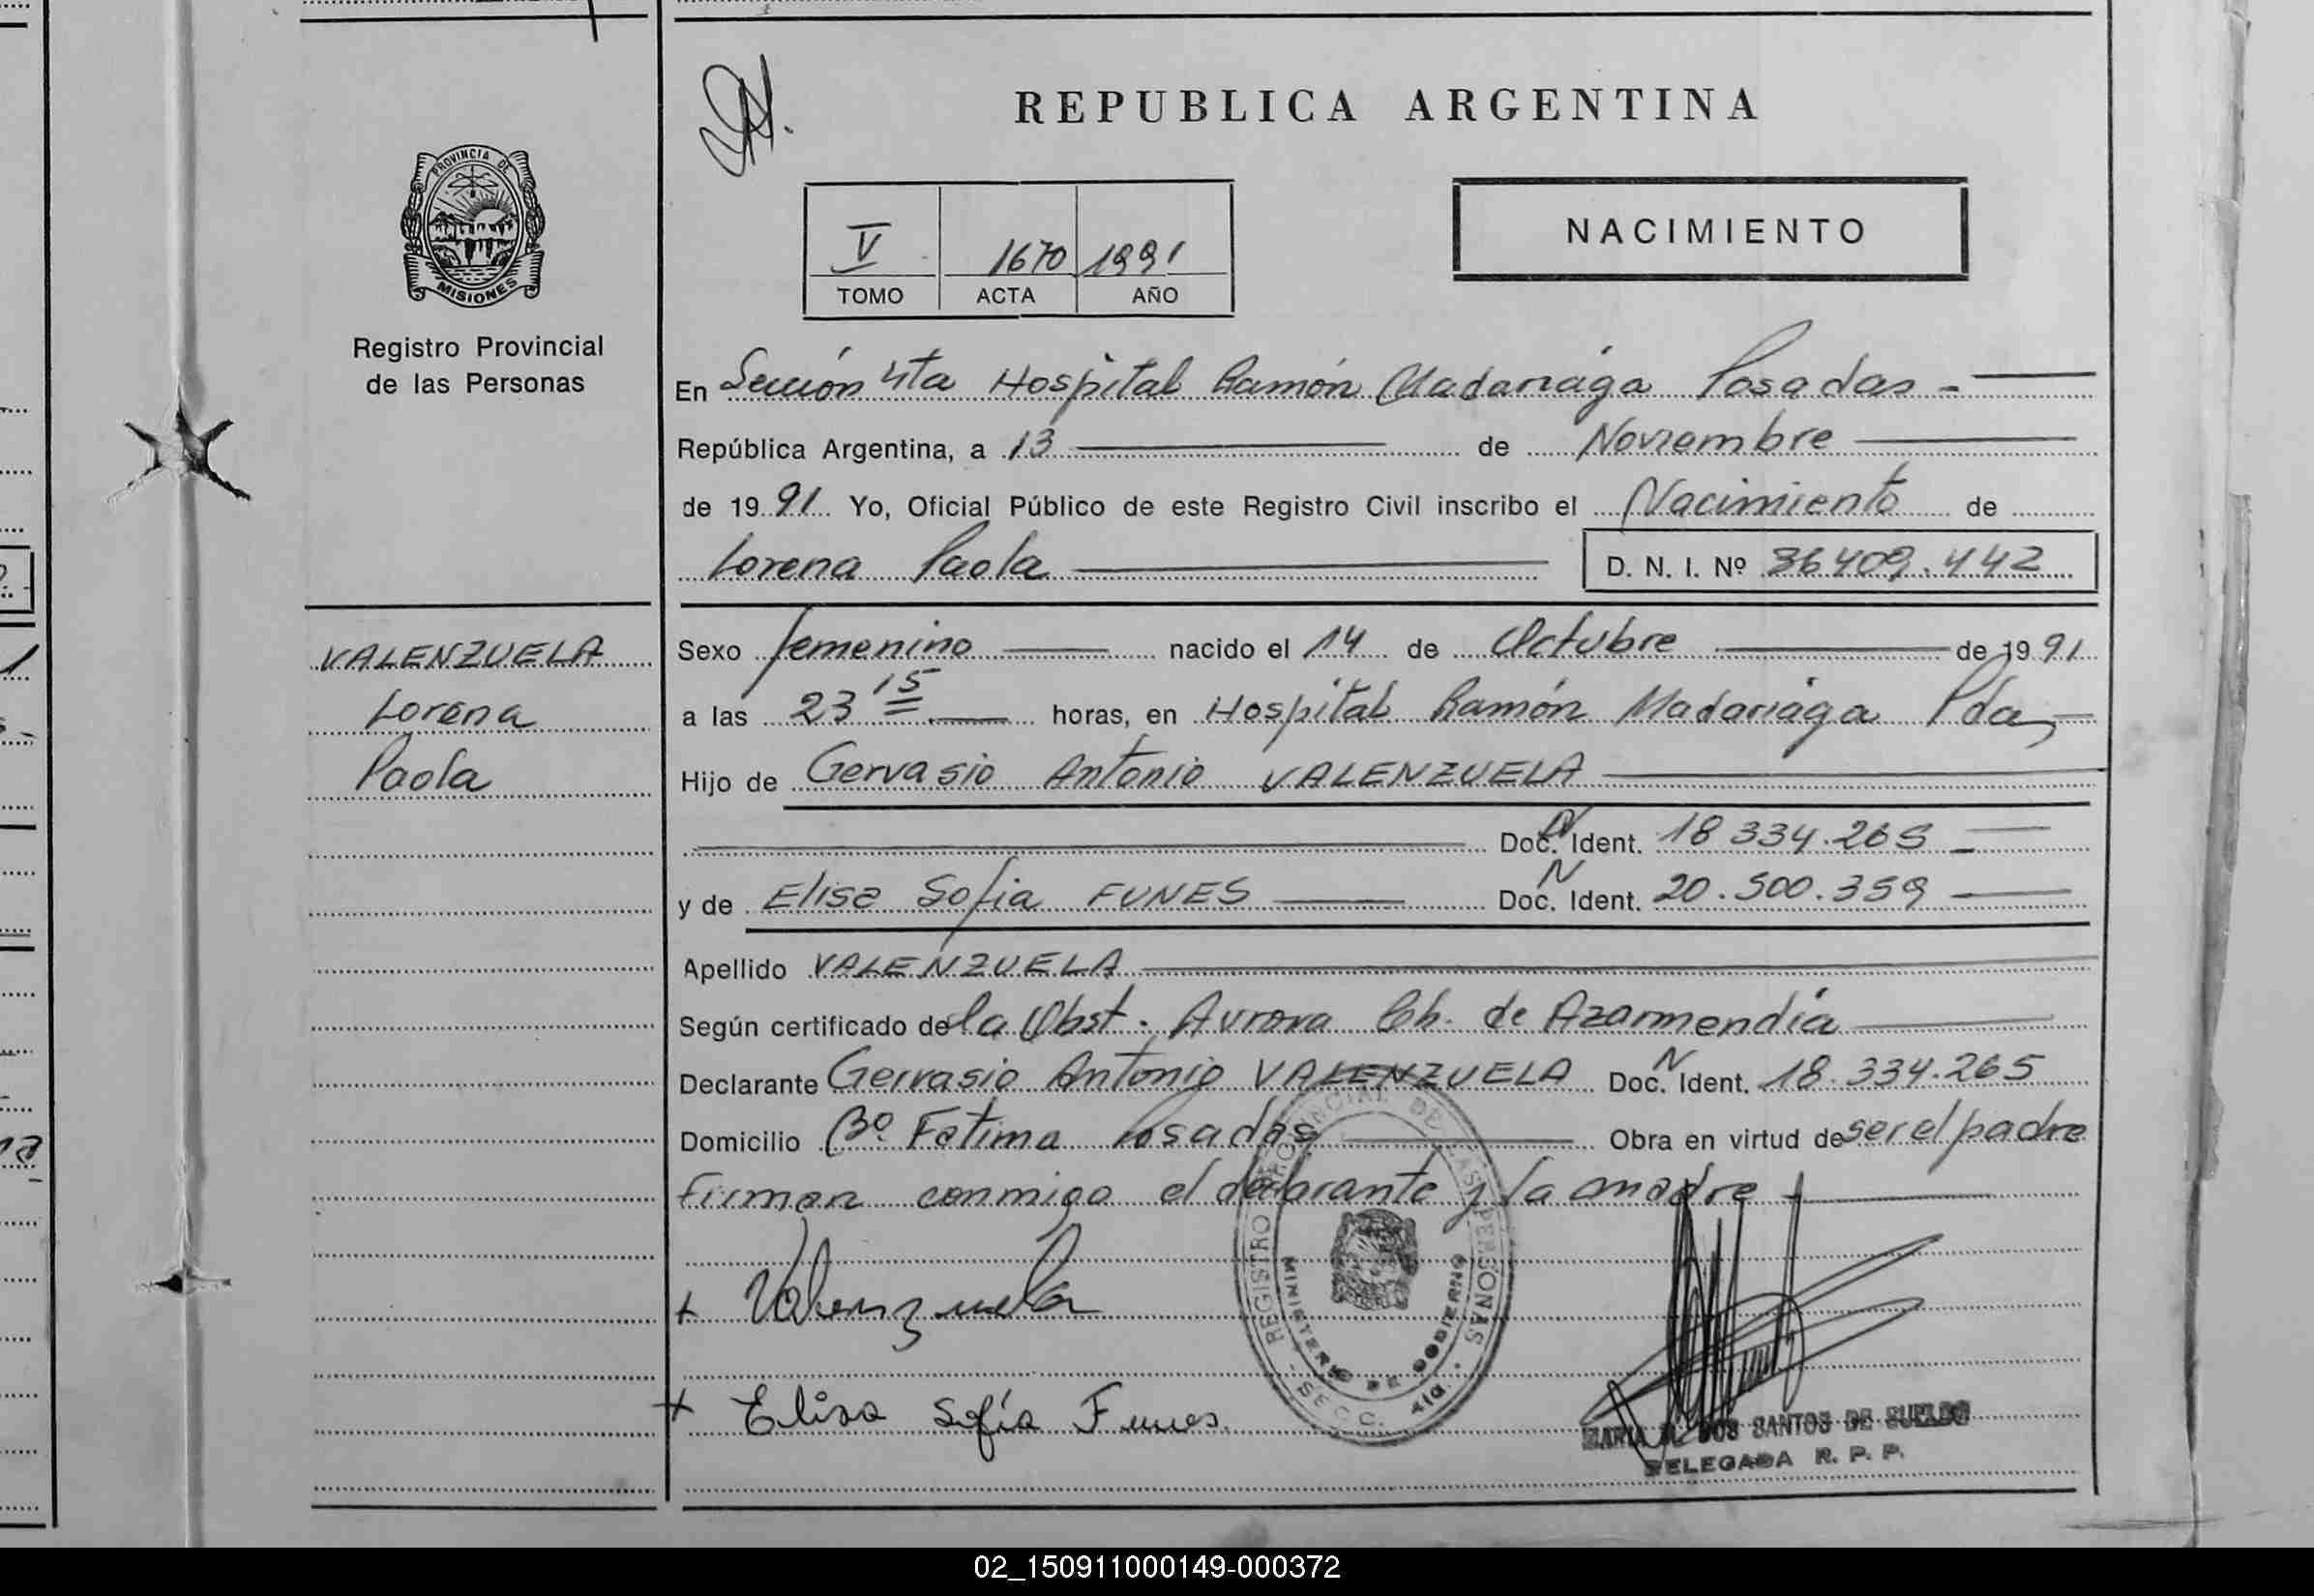 REPUBLICA ARGENTINA
PROVINCIA DE
MISIONES
Registro Provincial
de las Personas
V 1670 1991
TOMO ACTA AÑO
NACIMIENTO
En Sección 4ta Hospital Ramón Madariaga Posadas -
República Argentina, a 13 de Noviembre
de 1991 Yo, Oficial Público de este Registro Civil inscribo el Nacimiento de
Lorena Paola D. N. I. Nº 36409.442
VALENZUELA
Lorena
Paola
Sexo femenino nacido el 14 de Octubre de 1991
a las 23 15 horas, en Hospital Ramón Madariaga Pdas
Hijo de Gervasio Antonio VALENZUELA
Doc. N Ident. 18 334.265
y de Elisa Sofia FUNES Doc. N Ident. 20.500.359
Apellido VALENZUELA
Según certificado de la Obst. Aurora Ch. de Azarmendia
Declarante Gervasio Antonio VALENZUELA Doc. N Ident. 18.334.265
Domicilio Bº Fatima Posadas Obra en virtud de ser el padre
Firman conmigo el declarante y la madre
REGISTRO PROVINCIAL DE LAS PERSONAS
MINISTERIO DE GOBIERNO
SECC. 4ta.
+ Valenzuela
+ Elisa Sofía Funes.
MARIA DOS SANTOS DE SUELDO
DELEGADA R. P. P.
02_150911000149-000372